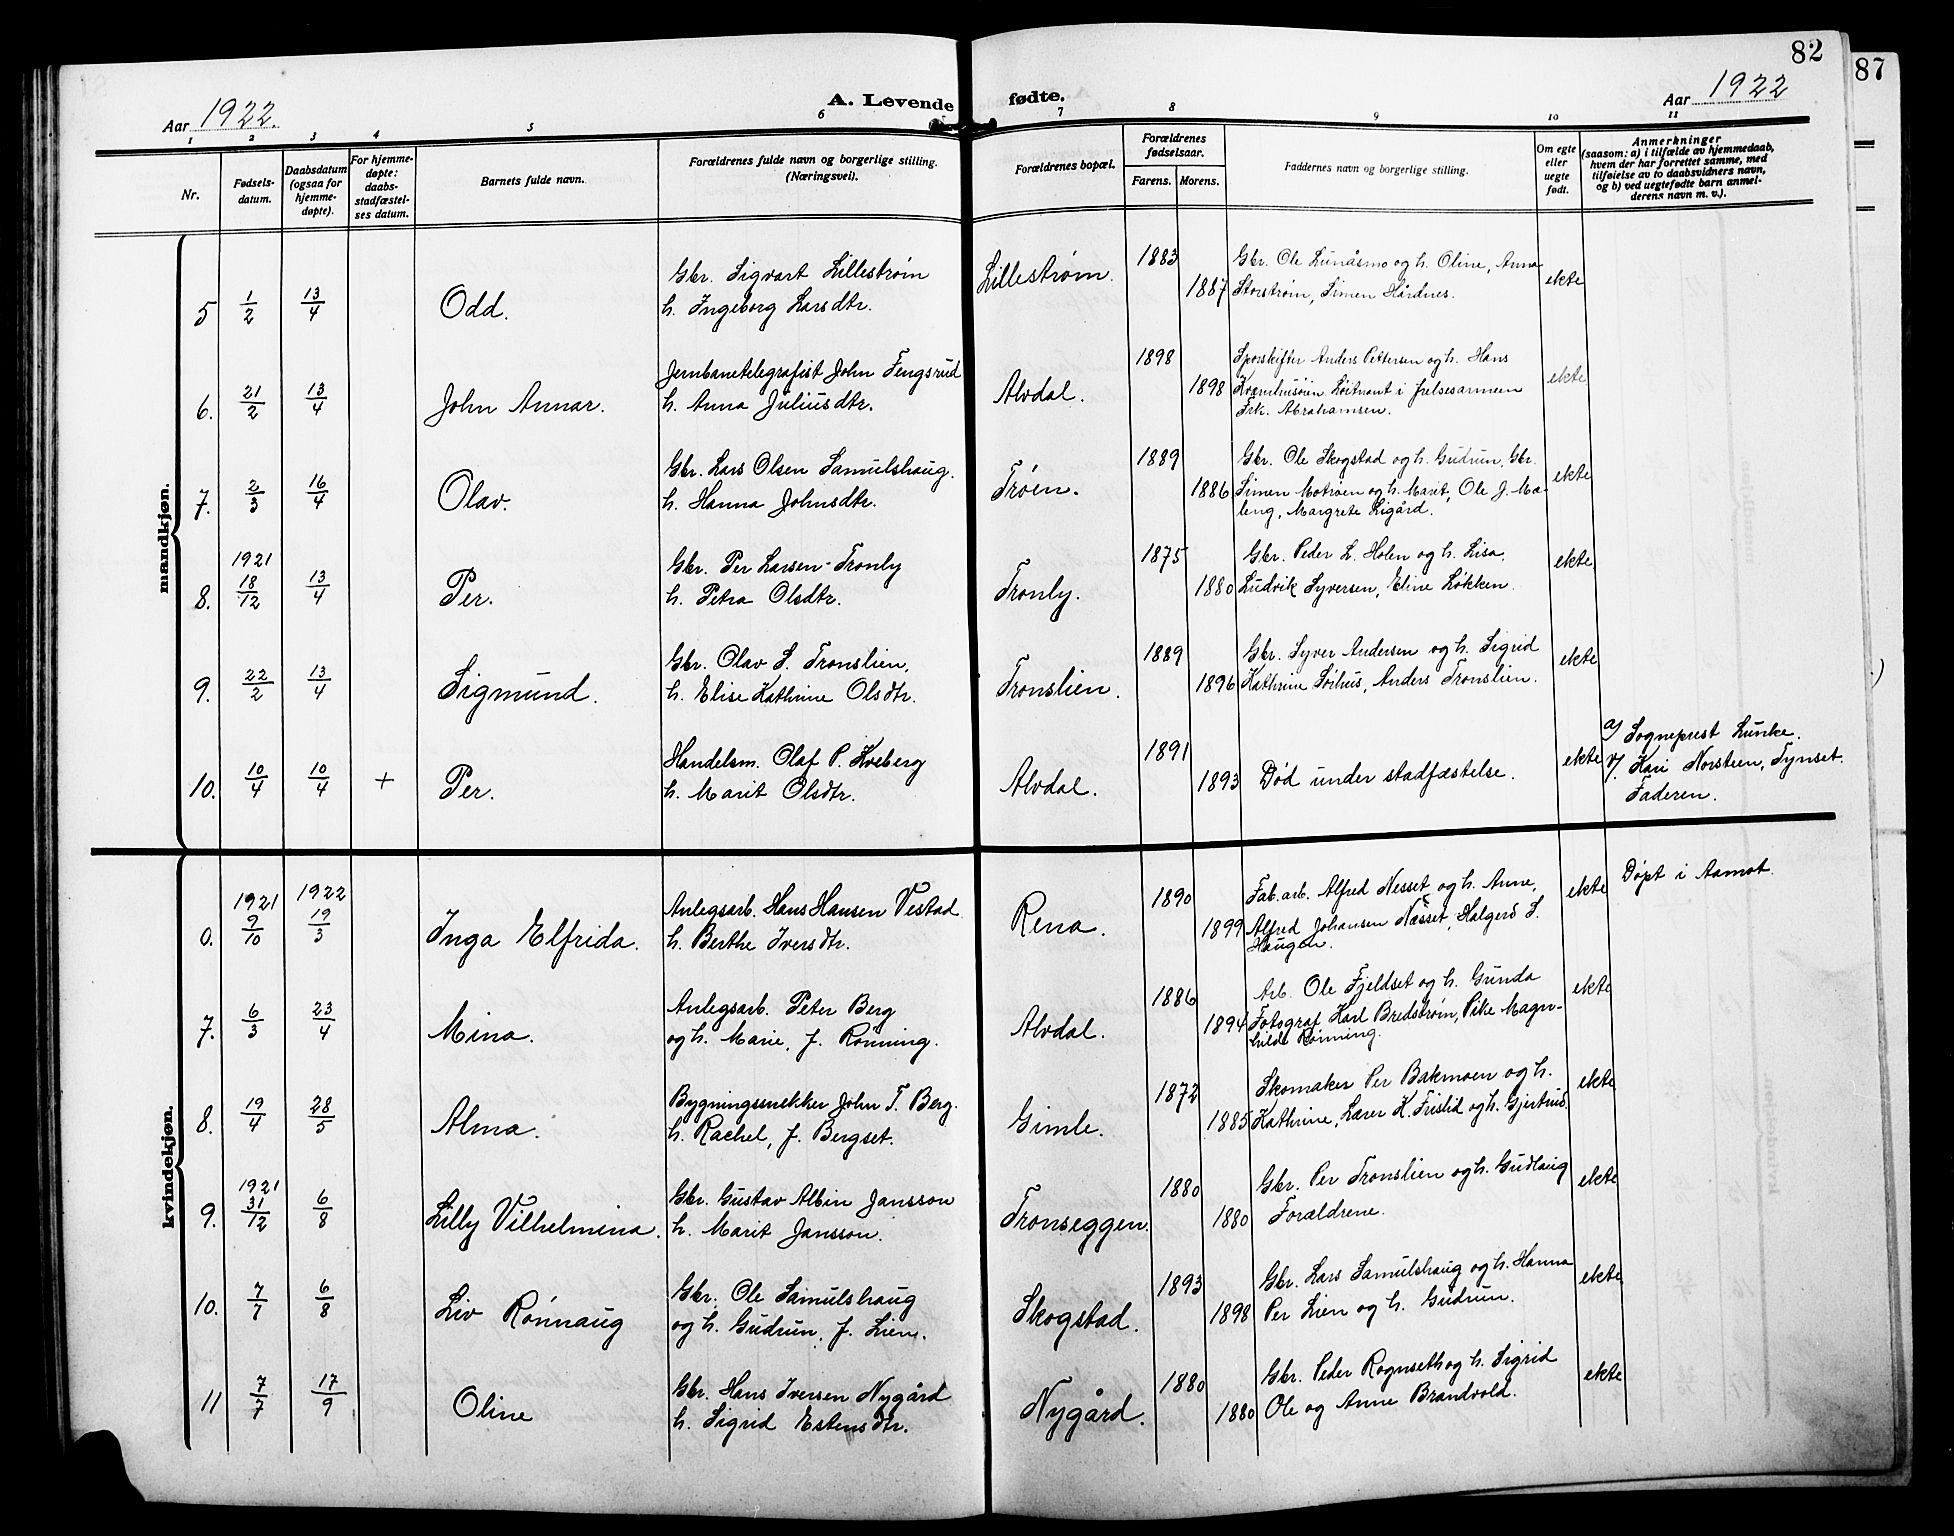 82
87
Aar 1922.
A. Levende fødte.
Aar 1922
1 2 3 4 5 6 7 8 9 10 11
Nr.
Fødsels-
datum.
Daabsdatum
(ogsaa for
hjemme-
døpte).
For hjemme-
døpte:
daabs-
stadfæstel-
ses datum.
Barnets fulde navn.
Forældrenes fulde navn og borgerlige stilling.
(Næringsvei).
Forældrenes bopæl.
Forældrenes
fødselsaar.
Farens. Morens.
Faddernes navn og borgerlige stilling.
Om egte
eller
uegte
født.
Anmerkninger
(saasom: a) i tilfælde av hjemmedaab,
hvem der har forrettet samme, med
tilføielse av to daabsvidners navn,
og b) ved uegtefødte barn anmel-
derens navn m. v.).
mandkjøn.
5 1/2 13/4 Odd. Gbr. Sigvart Lillestrøm
h. Ingeborg Larsdtr.
Lillestrøm. 1883 1887
Gbr. Ole Lunåsmo og h. Oline, Anna
Storstrøm, Simen Hårdnes.
ekte
6. 21/2 13/4 John Annar. Jernbanetelegrafist John Fengsrud
h. Anna Juliusdtr.
Alvdal. 1898 1898
Sporskifter Anders Pettersen og h. Hans
Kvernhusøien Løitnant i frelsesarmeen
Frk. Abrahamsen.
ekte
7. 2/3 16/4 Olav. Gbr. Lars Olsen Samulshaug.
h. Hanna Johnsdtr.
Trøen. 1889 1886
Gbr. Ole Skogstad og h. Gudrun, Gbr.
Simen Motrøen og h. Marit, Ole J. Mo-
leng, Margrete Ligård.
ekte
8. 1921 18/12 13/4 Per. Gbr. Per Larsen-Tronby
h. Petra Olsdtr.
Tronby. 1875 1880
Gbr. Peder L. Holen og h. Lisa.
Ludvik Syversen, Eline Løkken.
ekte
9. 22/2 13/4 Sigmund. Gbr. Olav S. Tronslien,
h. Elise Kathrine Olsdtr.
Tronslien. 1889 1896
Gbr. Syver Andersen og h. Sigrid
Kathrine Søihus, Anders Tronslien.
ekte
10. 10/4 10/4 + Per. Handelsm. Olaf P. Kveberg
h. Marit Olsdtr.
Alvdal. 1891 1893
Død under stadfæstelse.
ekte
a/ Sogneprest Lunke.
v/. Kari Norsteen, Tynset.
Faderen.
kvindekjøn.
0. 1921 9/10 1922 19/3 Inga Elfrida. Anlegsarb. Hans Hansen Vestad
h. Berthe Iversdtr.
Rena. 1890 1899
Fab.arb. Alfred Nesset og h. Anne,
Alfred Johansen Næsset, Halgerd S.
Haugen.
ekte
Døpt i Aamot.
7. 6/3 23/4 Mina. Anlegsarb. Peter Berg
og h. Marie, f. Rønning.
Alvdal. 1886 1894
Arb. Ole Fjeldset og h. Gunda
Fotograf Karl Bredstrøm, Pike Magn-
hild Rønning.
ekte
8. 19/4 28/5 Alma. Bygningssnekker John T. Berg.
h. Rachel, f. Bergset.
Gimle. 1872 1885
Skomaker Per Bakmoen og h.
Kathrine, Lærer K. Frislid og h. Gjertrud.
ekte
9. 1921 31/12 6/8 Lilly Vilhelmina. Gbr. Gustav Albin Jansson
h. Marit Jansson.
Tronseggen. 1880 1880
Gbr. Per Tronslien og h. Gudlaug
Forældrene.
ekte
10. 7/7 6/8 Liv Rønnaug Gbr. Ole Samulshaug
og h. Gudrun, f. Lien.
Skogstad. 1893 1898
Gbr. Lars Samulshaug og h. Hanna
Per Lien og h. Gudrun.
ekte
11 7/7 17/9 Oline Gbr. Hans Iversen Nygård
h. Sigrid Estensdtr.
Nygård. 1880 1880
Gbr. Peder Rognseth og h. Sigrid
Ole og Anne Brandvold.
ekte